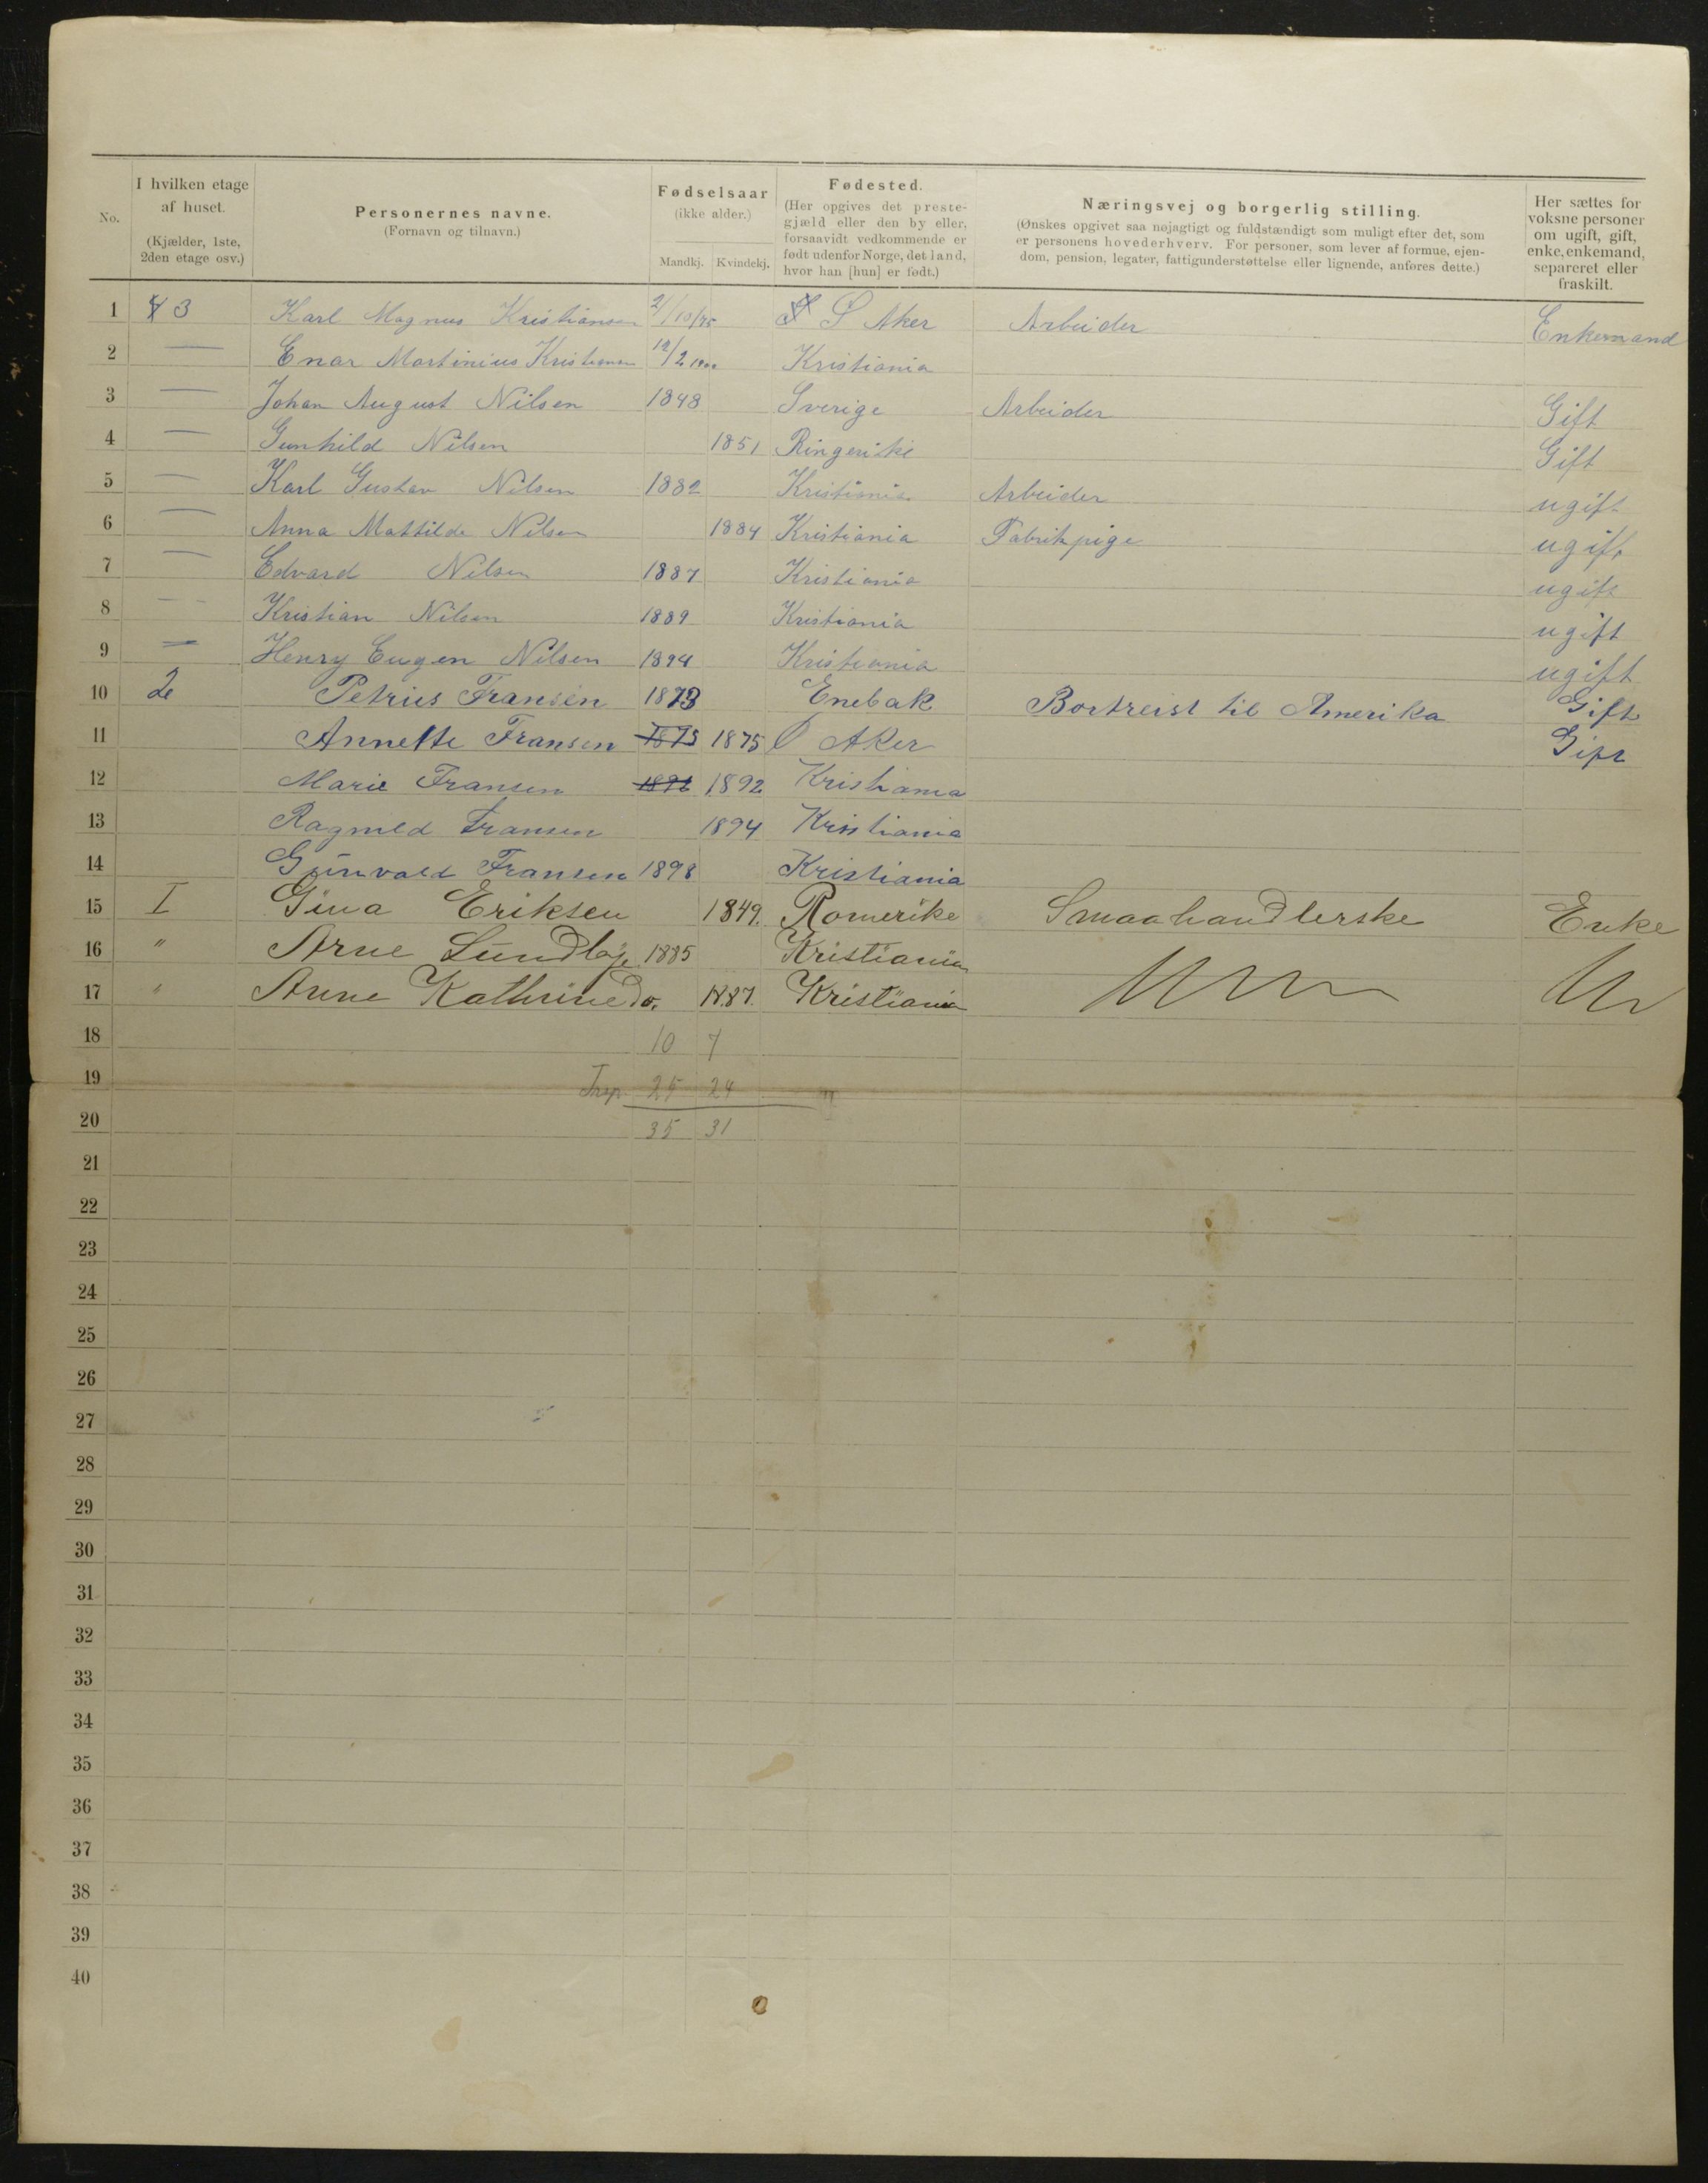 No.
I hvilken etage af huset. (Kjælder, 1ste, 2den etage osv.)
Personernes navne. (Fornavn og tilnavn.)
Fødselsaar (ikke alder.) Mandkj. Kvindekj.
Fødested. (Her opgives det prestegjæld eller den by eller, forsaavidt vedkommende er født udenfor Norge, det land, hvor han [hun] er født.)
Næringsvej og borgerlig stilling. (Ønskes opgivet saa nøjagtigt og fuldstændigt som muligt efter det, som er personens hovederhverv. For personer, som lever af formue, ejendom, pension, legater, fattigunderstøttelse eller lignende, anføres dette.)
Her sættes for voksne personer om ugift, gift, enke, enkemand, separeret eller fraskilt.
1 3 Karl Magnus Kristiansen 2/10/75 S Aker Arbeider Enkemand
2 — Enar Martinius Kristiansen 12/2 1900 Kristiania
3 — Johan August Nilsen 1848 Sverige Arbeider Gift
4 — Gunhild Nilsen 1851 Ringerike Gift
5 — Karl Gustav Nilsen 1882 Kristiania Arbeider ugift
6 — Anna Mattilde Nilsen 1884 Kristiania Fabrikpige ugift
7 — Edvard Nilsen 1887 Kristiania ugift
8 — Kristian Nilsen 1889 Kristiania ugift
9 — Henry Eugen Nilsen 1894 Kristiania ugift
10 2 Petrius Fransen 1873 Enebak Bortreist til Amerika Gift
11 Annette Fransen 1875 1875 Ø Aker Gift
12 Marie Fransen 1892 1892 Kristiania
13 Ragnild Fransen 1894 Kristiania
14 Gunvald Fransen 1898 Kristiania
15 I Gina Eriksen 1849. Romerike Smaahandlerske Enke
16 " Arne Lundbye 1885 Kristiania
17 " Anne Kathrine Do. 1887. Kristiania
18 10 7
19 Trsp. 25 24
20 35 31
21
22
23
24
25
26
27
28
29
30
31
32
33
34
35
36
37
38
39
40